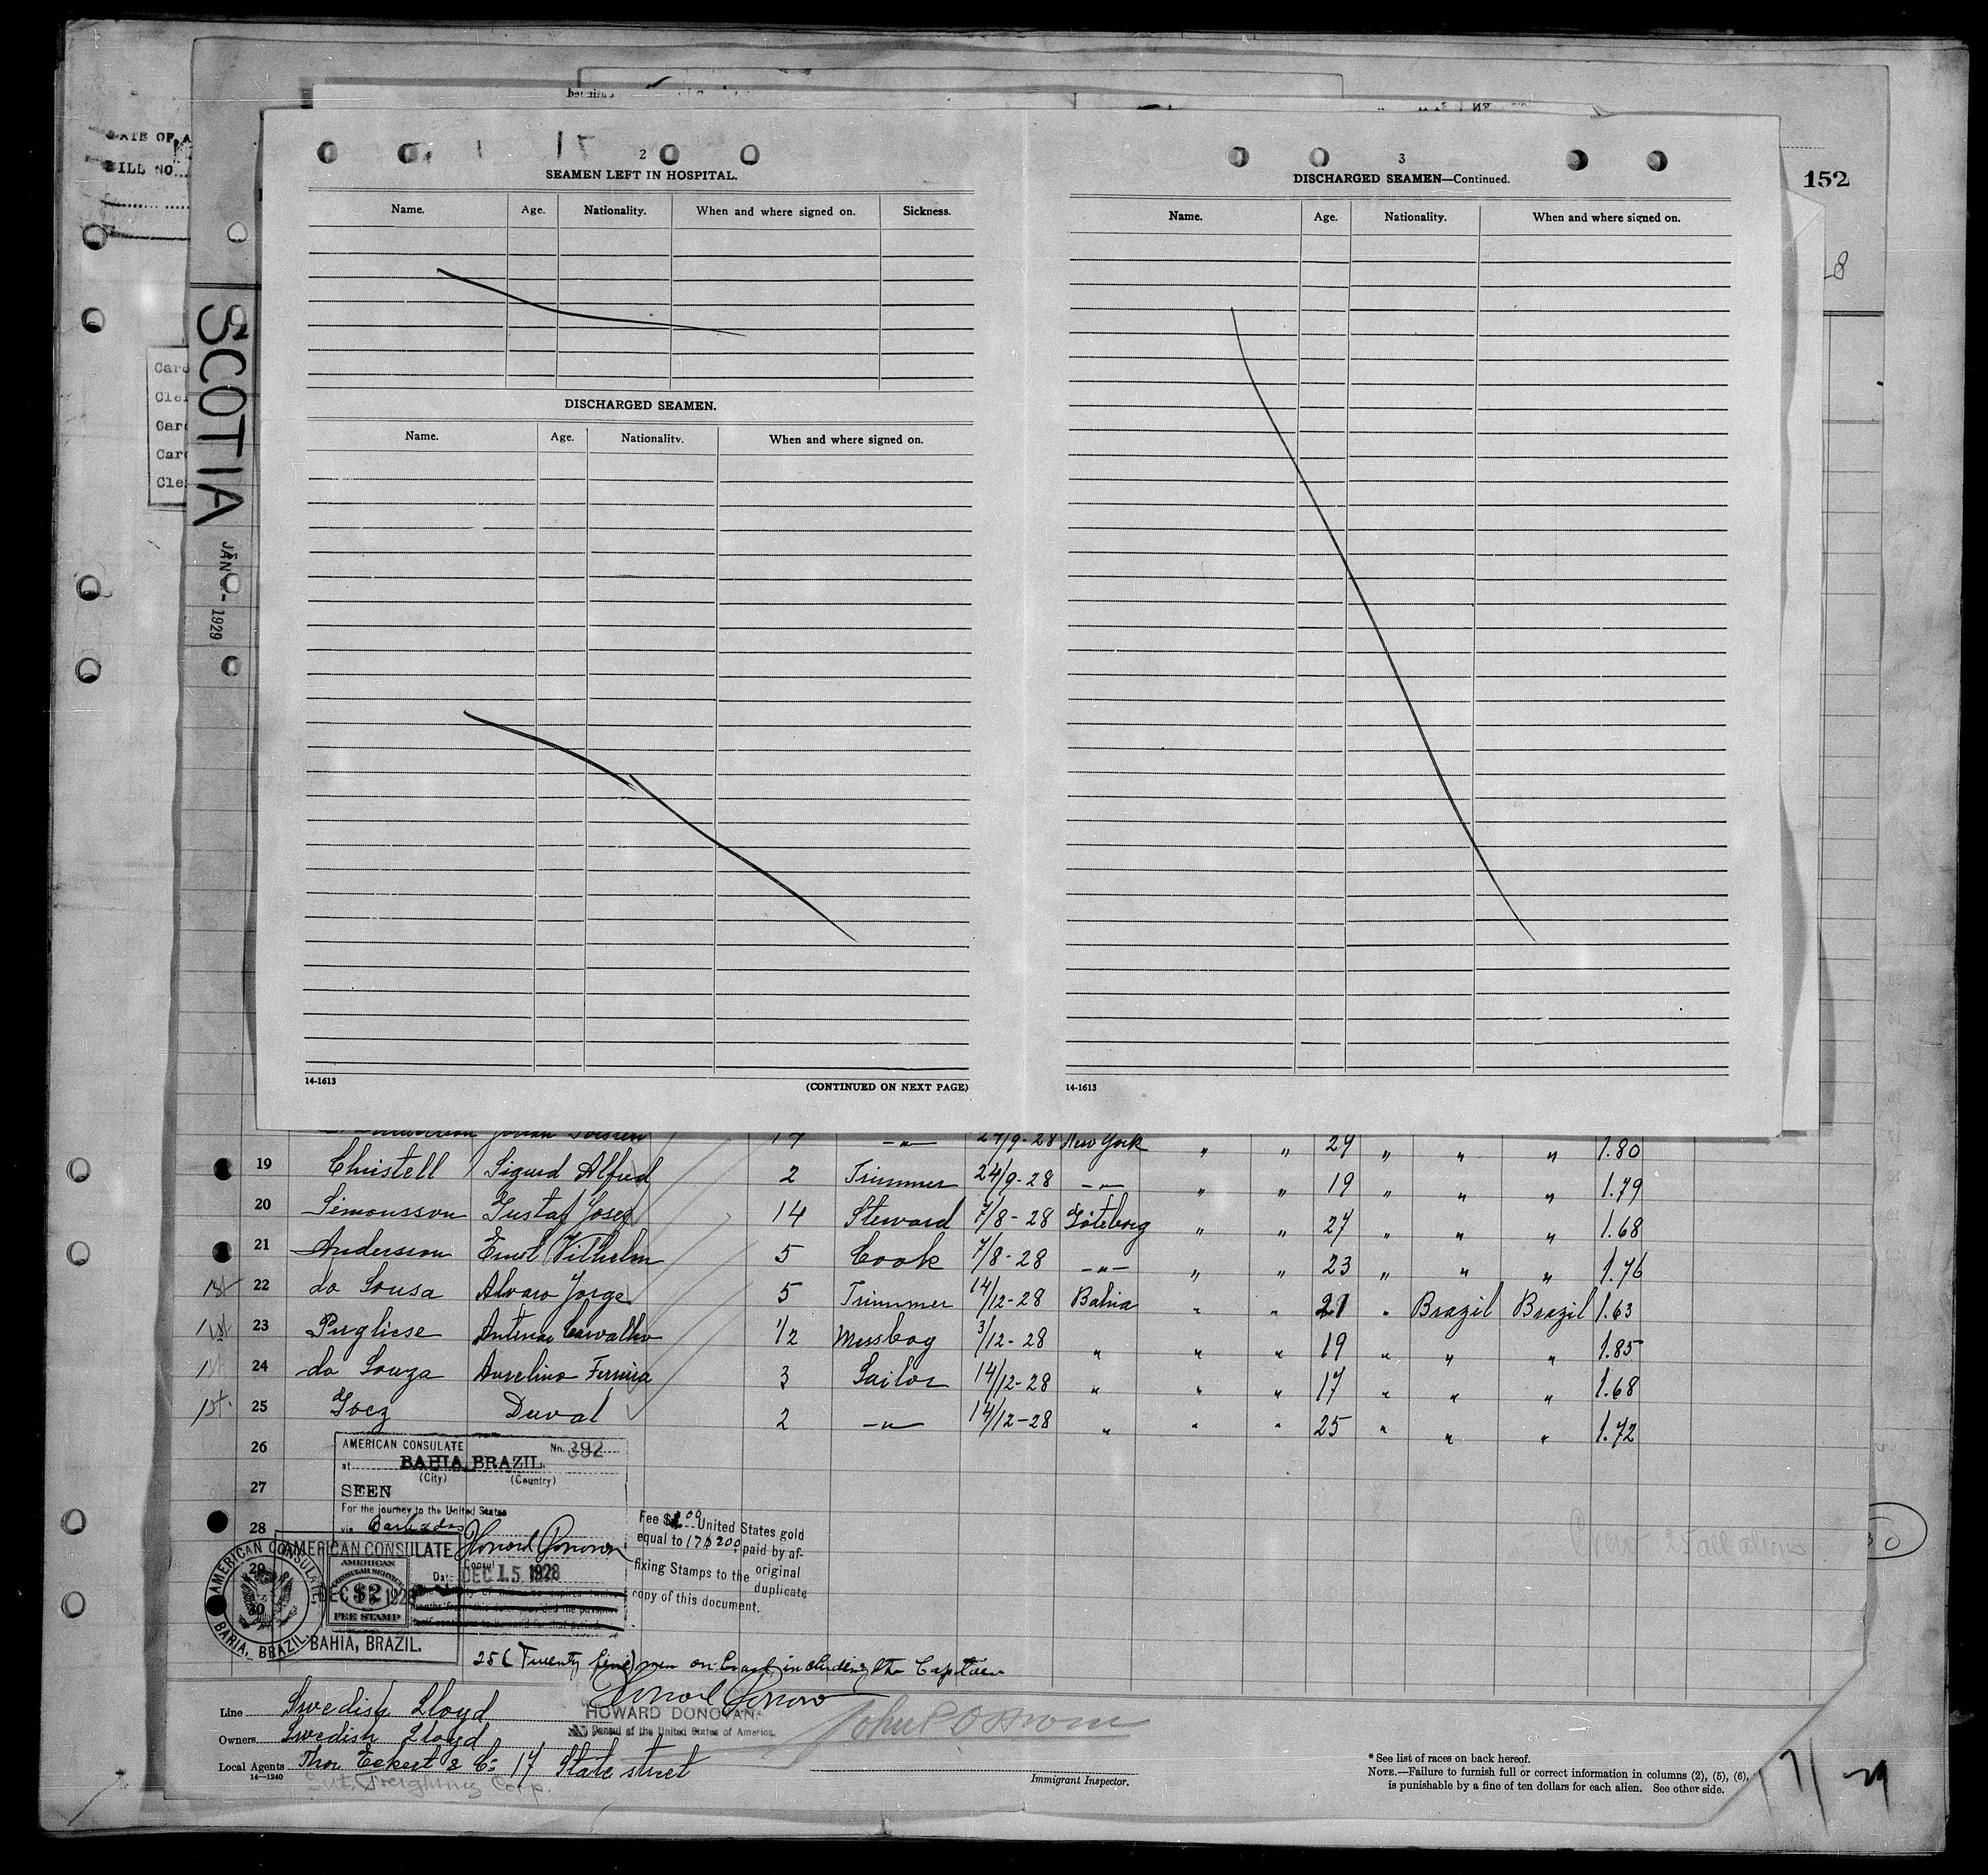 DATE OF A
BILL NO.
152
8
Card
Cler
Card
Card
Cle
SCOTIA
JAN - 1929
2
SEAMEN LEFT IN HOSPITAL.
Name. Age. Nationality. When and where signed on. Sickness.
DISCHARGED SEAMEN.
Name. Age. Nationality. When and where signed on.
14-1613 (CONTINUED ON NEXT PAGE)
3
DISCHARGED SEAMEN—Continued.
Name. Age. Nationality. When and where signed on.
14-1613
Johan 17 —"— 24/9-28 New York " " 29 " " " 1.80
19 Christell Sigurd Alfred 2 Trimmer 24/9-28 —"— " " 19 " " " 1.79
20 Simonsson Gustaf Josef 14 Steward 7/8-28 Göteborg " " 27 " " " 1.68
21 Andersson Ernst Vilhelm 5 Cook 7/8-28 —"— " " 23 " " " 1.76
1st 22 do Sousa Alvaro Jorge 5 Trimmer 14/12-28 Bahia " " 21 " Brazil Brazil 1.63
1st 23 Pugliese Antenor Carvalho 1/2 Messboy 3/12-28 " " " 19 " " " 1.85
1st 24 do Souza Aurelino Ferreira 3 Sailor 14/12-28 " " " 17 " " " 1.68
1st 25 Goez Duval 2 —"— 14/12-28 " " " 25 " " " 1.72
26
27
28
29
30
AMERICAN CONSULATE No. 392
at BAHIA BRAZIL.
(City) (Country)
SEEN
For the journey to the United States
via Barbados
Howard Donovan
Consul
Date DEC 15 1928
Fee $2.00 United States gold
equal to 17$200 paid by af-
fixing Stamps to the original
duplicate
copy of this document.
AMERICAN CONSULATE
AMERICAN
CONSULAR SERVICE
$2
FEE STAMP
BAHIA, BRAZIL.
AMERICAN CONSULATE. BAHIA, BRAZIL
Crew 25 all aliens
25 (Twenty five) men on board including the Captain
Howard Donovan
HOWARD DONOVAN
Consul of the United States of America.
Line Swedish Lloyd
Owners Swedish Lloyd
Local Agents Thor Eckert & Co 17 State street
14—1240
Freighting Corp.
Immigrant Inspector.
* See list of races on back hereof.
NOTE.—Failure to furnish full or correct information in columns (2), (5), (6),
is punishable by a fine of ten dollars for each alien. See other side.